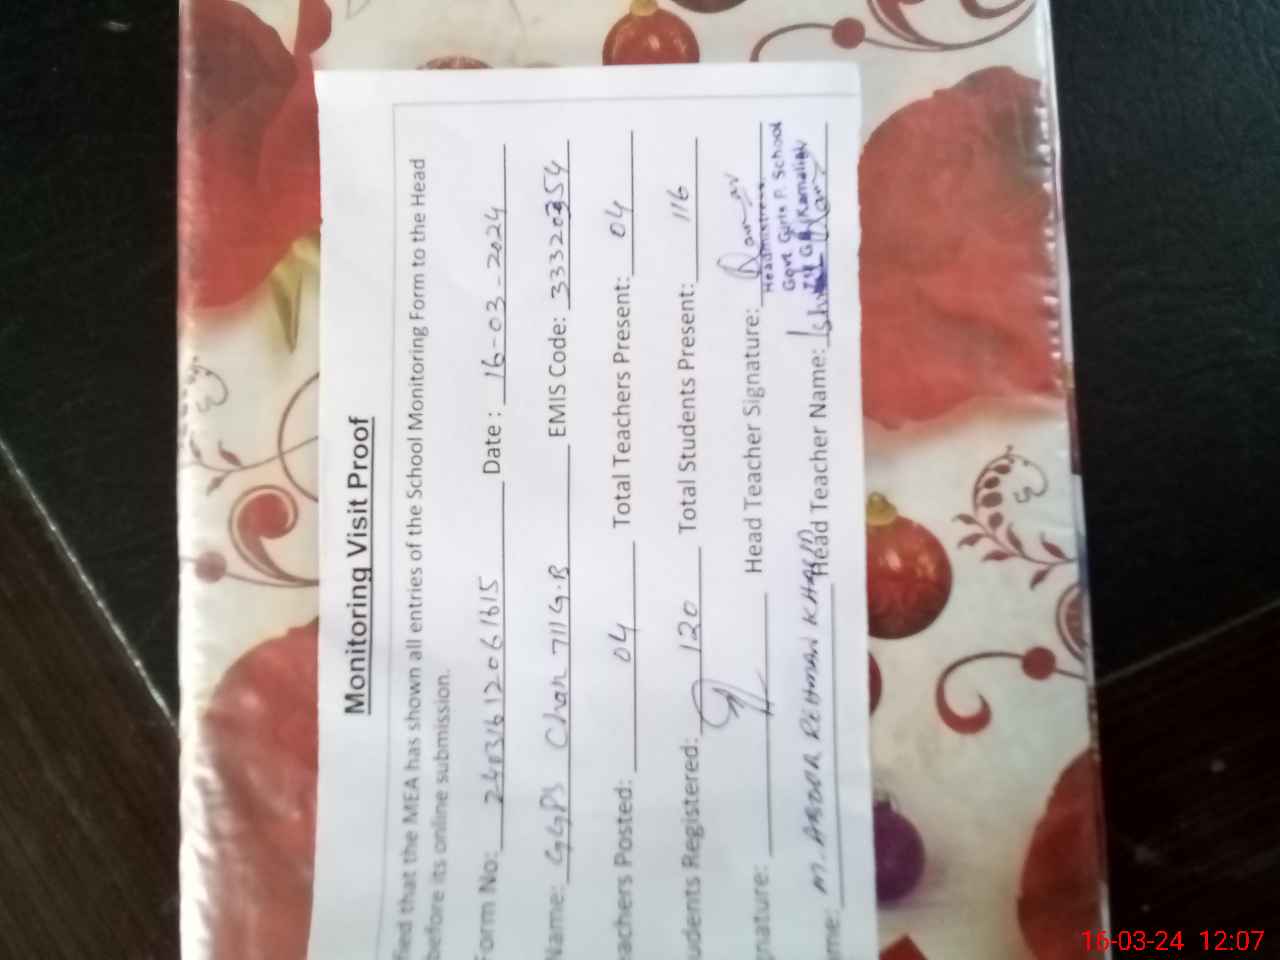 Monitoring Visit Proof
fied that the MEA has shown all entries of the School Monitoring Form to the Head
before its online submission.
Form No: 24031612061615 Date : 16-03-2024
Name: GGPS Chak 711 G.B EMIS Code: 33320354
achers Posted: 04 Total Teachers Present: 04
udents Registered: 120 Total Students Present: 116
gnature: Head Teacher Signature:
Headmistress
Govt Girls P. School
711 G.B Kamalia
me: M. ABDUR REHMAN KHALID Head Teacher Name:
16-03-24 12:07